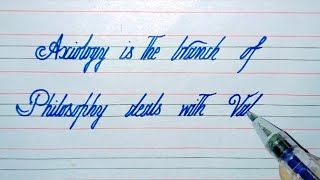 Axiology is the branch of
Philosophy deals with Val